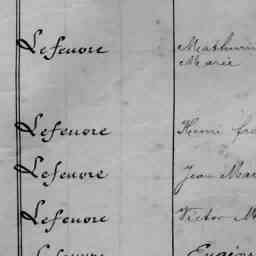 Lefeuvre Mathurin
Marie
Lefeuvre Henri Fra
Lefeuvre Jean Mar
Lefeuvre Victor M
Lefeuvre Eugène